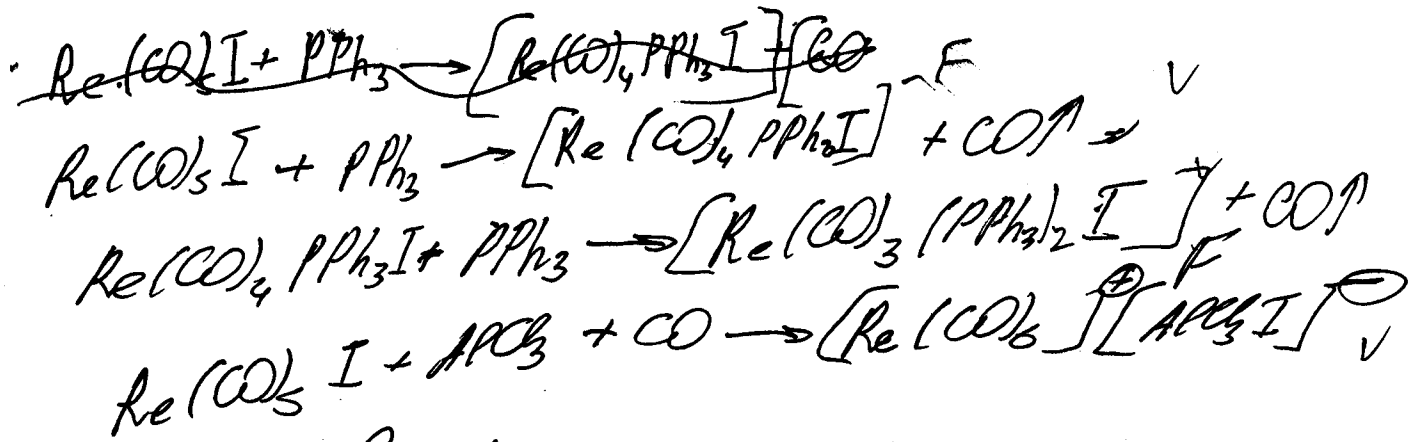 Re(CO)₅I + PPh₃ → [Re(CO)₄PPh₃I] + [CO F
Re(CO)₅I + PPh₃ → [Re(CO)₄PPh₃I] + CO↑ V
Re(CO)₄PPh₃I + PPh₃ → [Re(CO)₃(PPh₃)₂I] + CO↑ F
Re(CO)₅I + AlCl₃ + CO → [Re(CO)₆]⊕[AlCl₃I]⊖ V